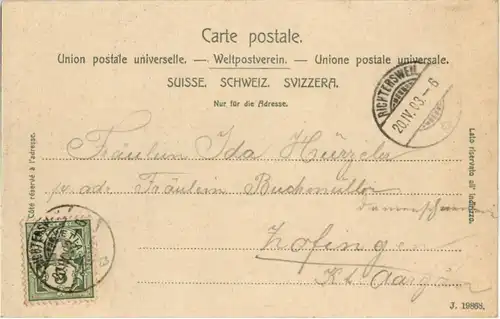 Carte postale.
Union postale universelle. — Weltpostverein. — Unione postale universale.
SUISSE. SCHWEIZ. SVIZZERA.
Nur für die Adresse.
RICHTERSWEIL
20.IV.03.–6
Côté réservé à l'adresse.
Lato riservato all' indirizzo.
Fräulein Ida Hürzeler
p. ad. Fräulein Buchmüller
Zofingen
Kt. Aargau
RICHTERSW
J. 19868.